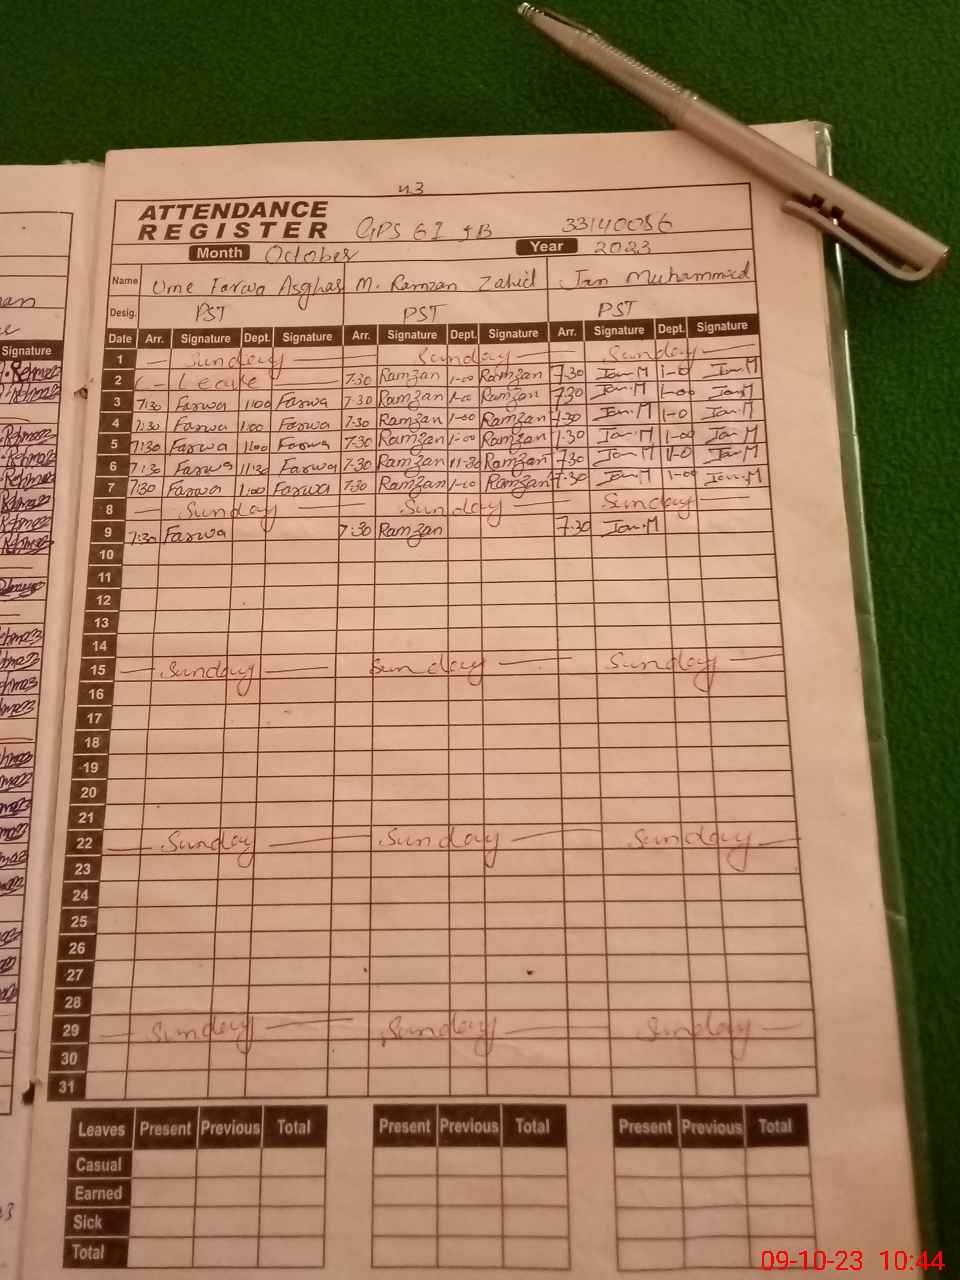 43
ATTENDANCE
REGISTER GPS 61 JB 33140086
Month October Year 2023
Name Ume Farwa Asghar M. Ramzan Zahid Jan Muhammad
Desig. PST PST PST
Date Arr. Signature Dept. Signature Arr. Signature Dept. Signature Arr. Signature Dept. Signature
1 Sunday Sunday Sunday
2 Leave 7-30 Ramzan 1-00 Ramzan 7-30 Jan.M 1-0 Jan.M
3 7:30 Farwa 1:00 Farwa 7-30 Ramzan 1-00 Ramzan 7-30 Jan.M 1-00 Jan.M
4 7:30 Farwa 1:00 Farwa 7-30 Ramzan 1-00 Ramzan 7-30 Jan.M 1-0 Jan.M
5 7:30 Farwa 1:00 Farwa 7-30 Ramzan 1-00 Ramzan 7-30 Jan.M 1-00 Jan.M
6 7:30 Farwa 11:30 Farwa 7-30 Ramzan 11-30 Ramzan 7-30 Jan.M Jan.M
7 7:30 Farwa 1:00 Farwa 7-30 Ramzan 1-00 Ramzan 7-30 Jan.M 1-00 Jan.M
8 Sunday Sunday Sunday
9 7:30 Farwa 7:30 Ramzan 7-30 Jan.M
10
11
12
13
14
15 Sunday Sunday Sunday
16
17
18
19
20
21
22 Sunday Sunday Sunday
23
24
25
26
27
28
29 Sunday Sunday Sunday
30
31
Leaves Present Previous Total Present Previous Total Present Previous Total
Casual
Earned
Sick
Total
Signature
09-10-23 10:44